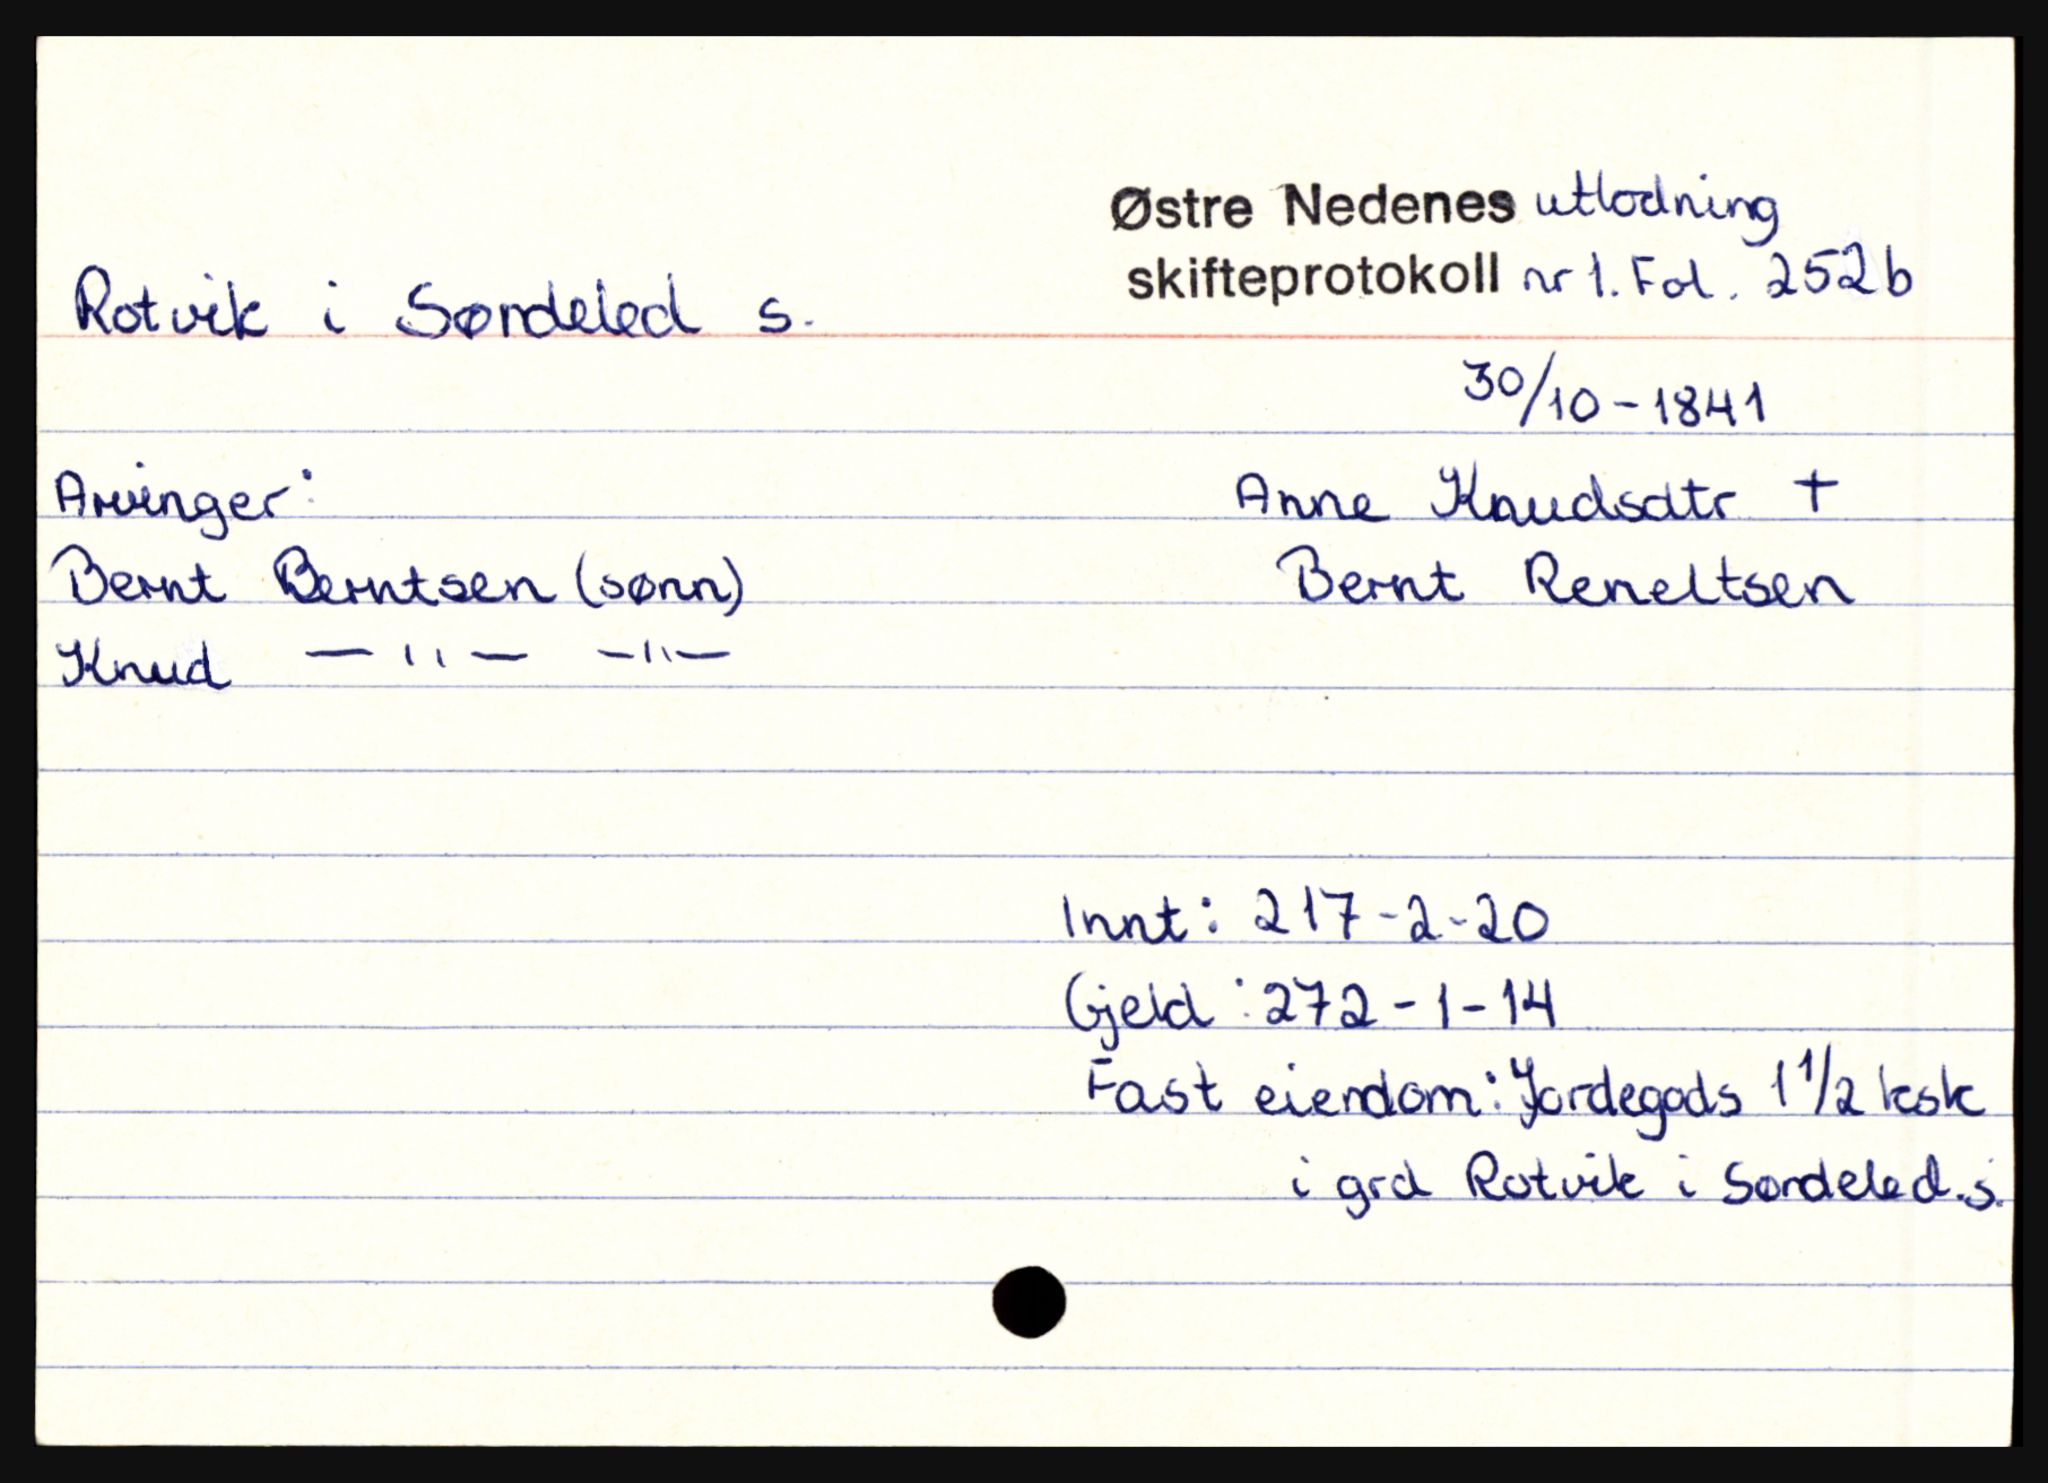 Østre Nedenes utlodning
skifteprotokoll nr 1. Fol. 252b
Rotvik i Søndeled s.
30/10-1841
Arvinger:
Anne Knudsdtr +
Bernt Berntsen (sønn)
Bernt Reneltsen
Knud — " — — " —
Innt: 217-2-20
Gjeld: 272-1-14
Fast eiendom: Jordegods 1 1/2 ksk
i grd Rotvik i Søndeled.s.